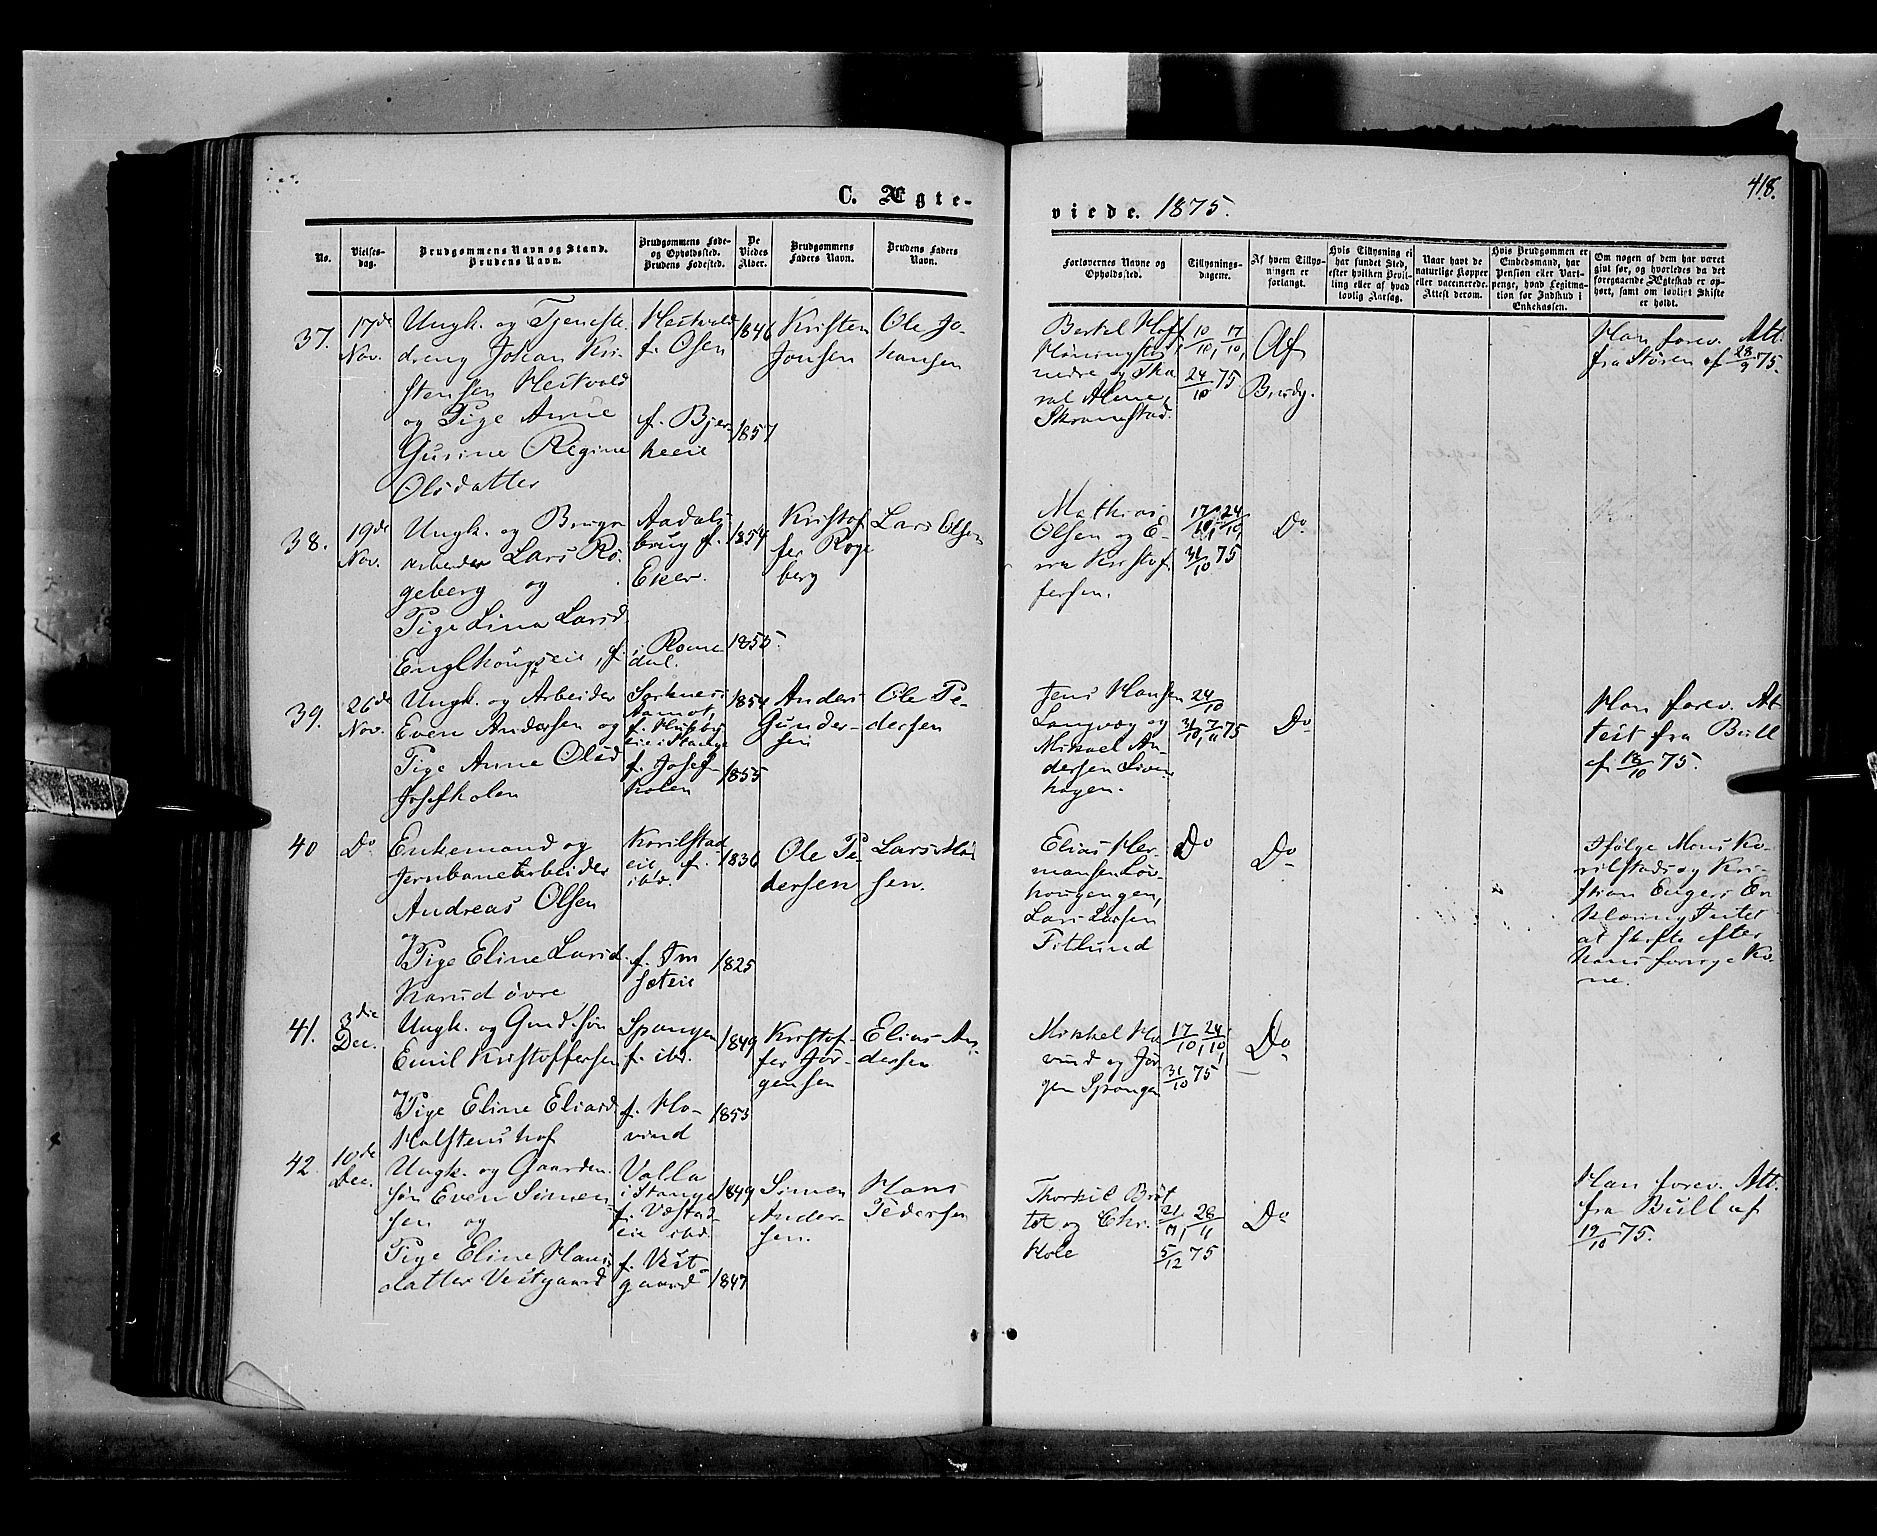 418.
C. Ægte-
viede. 1875.
No.
Vielses-
dag.
Brudgommens Navn og Stand.
Brudens Navn.
Brudgommens Føde-
og Opholdssted.
Brudens Fødested.
De
Viedes
Alder.
Brudgommens
Faders Navn.
Brudens Faders
Navn.
Forlovernes Navne og
Opholdssted.
Tillysnings-
dagene.
Af hvem Tillys-
ningen er
forlangt.
Hvis Tillysning ei
har fundet Sted,
efter hvilken Bevil-
ling eller af hvad
lovlig Aarsag.
Naar havt de
naturlige Kopper
eller vaccinerede.
Attest derom.
Hvis Brudgommen er
Embedsmand, har
Pension eller Vart-
penge, hvad Legitima-
tion for Indskud i
Enkekassen.
Om nogen af dem har været
givt før, og hvorledes da det
foregaaende Ægteskab er op-
hørt, samt om lovligt Skifte
er holdt.
37.
17de
Nov.
Ungk. og Tjeneste-
dreng Johan Kri-
stensen Hestvold
og Pige Anne
Gurine Regine
Olsdatter
Hestvold
f. Osen
f. Bjer-
keeie
1846
1857
Kristen
Jonsen
Ole Jo-
hansen
Bertel Hoff,
Hóningstes
nedre og
Skramstad.
10/10, 17/10,
24/10 75
Af
Brudg.
Han forev. Att.
fra Støren af 28/9 75.
38.
19de
Nov.
Ungk. og Brugs-
arbeider Lars Ro-
geberg og
Pige Lina Larsd
Englhougseie, f.
Aadals
brug f.
Eker.
i Rome
dal.
1854
1855.
Kristof
fer Roge
berg
Lars Olsen
Mathias
Olsen og E-
rra Kristof-
fersen.
17/10, 24/10,
31/10 75
Do
39.
26de
Nov.
Ungk. og Arbeider
Even Andersen og
Pige Anne Olsd
Josefkolen
Sorknes i
Aamot,
f. Husby
eie i Stange
f. Josef-
kolen
1854
1855
Anders
Gunder-
sen
Ole Pe-
dersen
Jens Hansen
Langvog og
Mikael An-
dersen Liven
hagen.
24/10
31/10, 7/11 75
Do
Han forev. At-
test fra Bull
af 18/10 75.
40
Do
Enkemand og
Jernbanearbeider
Andreas Olsen
og
Pige Eline Larsd.
Karud øvre
Korilstad
eie, f.
ibd.
f. Im
seteie
1836
1825
Ole Pe-
dersen
Lars Han
sen.
Elias Her-
mansen Løv-
hougengen,
Lars Larsen
Fitlund
Do
Do
Ifølge Mons Ko-
rilstads og Kri-
stian Engers Er-
klæring Intet
at skifte efter
hans forrige Ko-
ne.
41.
3die
Dec.
Ungk. og Gmd.søn
Emil Kristoffersen
og
Pige Eline Eliasd
Halstenshof
Spangen
f. ibd.
f. Ho-
vind
1849
1853
Kristof-
fer Jør-
gensen
Elias An-
dersen
Mikkel Ho
vind og Jør
gen Spangen
17/10, 24/10,
31/10 75
Do
42.
10de
Dec.
Ungk. og Gaardm.
søn Even Simen-
sen og
Pige Eline Hans-
datter Vestgaard
Valla
i Stange
f. Vestad-
eie ibd.
f. Vest-
gaard
1849
1847
Simen
Ander-
sen.
Hans
Pedersen
Thorkil Bröt
tet og Chr.
Hole
21/11, 28/11
5/12 75
Do
Han forev. Att.
fra Bull af
19/10 75.